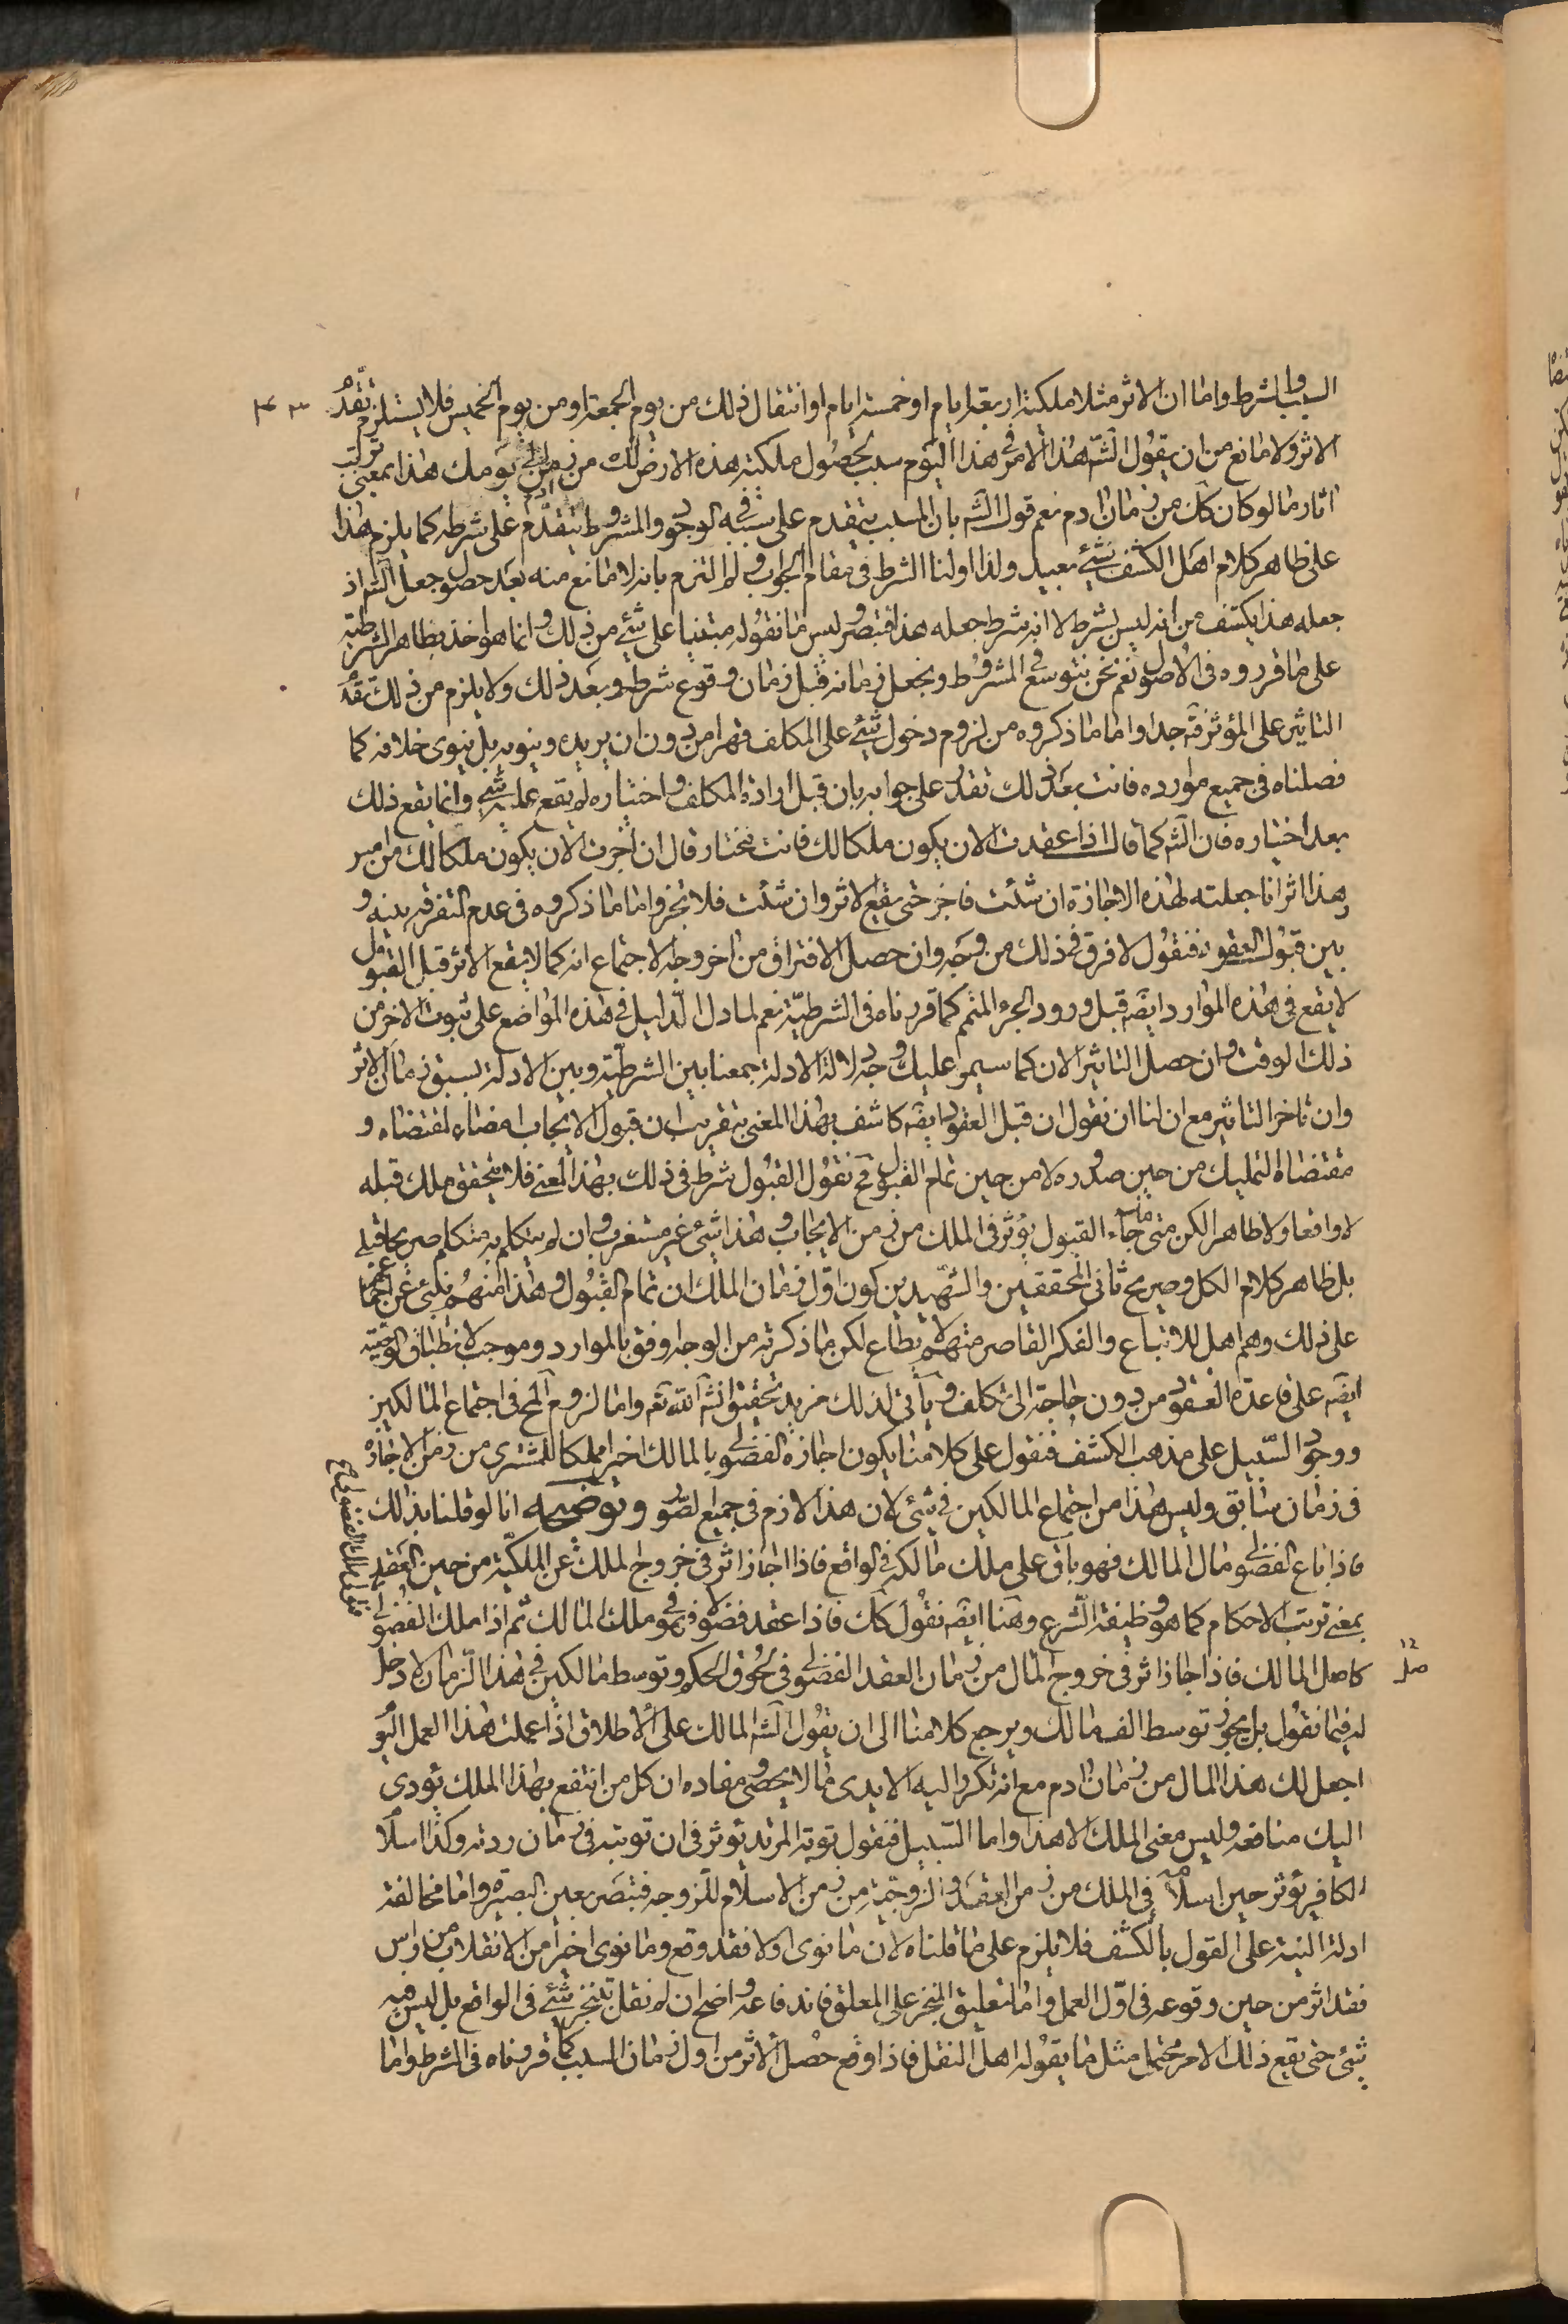 السبب والشرط واما ان الاثر مثلا ملكية اربعة ايام او خمسة ايام او انتقال ذلك من يوم الجمعة او من يوم الخميس فلا يستلزم تقدم
الاثر ولا مانع من ان يقول الشه هذا الامر في هذا اليوم سبب لحصول ملكية هذه الارض لك من زمن الى يومك هذا بمعنى ترتب
اثار ما لو كان كك من زمان ادم نعم قول الشه بان المسبب يتقدم على سببه في الوجود والمشروط يتقدم على شرطه كما يلزم هذا
على ظاهر كلام اهل الكشف شيء بعيد ولذا اولنا الشرط في مقام الجواب ولو التزم بانه لا مانع منه بعد حصول جعل الشه اذ
جعله هذا يكشف من انه ليس بشرط لا انه شرط جعله هذا فتبصر وليس ما نقوله مبتنيا على شيء من ذلك وانما هو اخذ بظاهر الشرطية
على ما قرروه في الاصول نعم نحن نتوسع في المشروط ونجعل زمانه قبل زمان وقوع شرطه وبعد ذلك ولا يلزم من ذلك تقدم
التاثير على المؤثر فته جدا واما ما ذكروه من لزوم دخول شيء على المكلف قهرا من دون ان يريده وينويه بل ينوى خلافه كما
فصلناه في جميع موارده فانت بعد ذلك تقدر على جوابه بان قبل ارادة المكلف واختياره لم يقع عليه شيء وانما يقع ذلك
بعد اختياره فان الشه كما قال اذا عقدت الان يكون ملكا لك فانت مختار قال ان اجزت الان يكون ملكا لك من امس
وهذا اثر انا جعلته لهذه الاجازة ان شئت فاجز حتى يقع الاثر وان شئت فلا تجز واما ما ذكروه في عدم التفرقة بينه و
بين قبول العقود فنقول لا فرق في ذلك من وجه وان حصل الافتراق من اخر وجه الاجتماع انه كما لا يقع الاثر قبل القبول
لا يقع في هذه الموارد ايضه قبل ورود الجزء المتمم كما قررناه في الشرطية نعم لما دل الدليل في هذه المواضع على ثبوت الاخر من
ذلك الوقت وان حصل التاثير الان كما سيمر عليك وجه دلالة الادلة جمعنا بين الشرطية وبين الادلة بسبق زمان الاثر
وان تاخر التاثير مع ان لنا ان نقول ان قبل العقود ايضه كاشف بهذا المعنى بتقريب ان قبول الايجاب امضاء لمقتضاه و
مقتضاه التمليك من حين صدوره لا من حين تمام القبول فح نقول القبول شرط في ذلك بهذا المعنى فلا يتحقق ملك قبله
لا واقعا ولا ظاهرا لكن متى جاء القبول يؤثر في الملك من زمن الايجاب وهذا شيء غير مستغرب وان لم يتكلم به متكلم صريحا قبلي
بل ظاهر كلام الكل وصريح ثاني المحققين والشهيدين كون اول زمان الملك ان تمام القبول وهذا منهم ينبئ عن اجماع
على ذلك وهم اهل للاتباع والفكر القاصر منهم لا يطاع لكن ما ذكرته من الوجه اوفق بالموارد وموجب لانطباق الوصية
ايضه على قاعدة العقود من دون حاجة الى تكلف ويأتي لذلك مزيد تحقيق انشه الله تعه واما لزوم المح في اجتماع المالكين
ووجود السبيل على مذهب الكشف فنقول على كلامنا يكون اجازة الفضولي بالمالك اخيرا مملكا للمشترى من زمن الاجازة
في زمان سابق وليس هذا من اجتماع المالكين في شيء لان هذا لازم في جميع الصور وتوضيحه انا لو قلنا بذلك
فاذا باع الفضولي مال المالك فهو باق على ملك مالكه في الواقع فاذا اجاز اثر في خروج الملك عن الملكية من حين العقد
بمعنى ترتب الاحكام كما هو وظيفة الشرع وهنا ايضه نقول كك فاذا عقد فضولا فهو في ملك المالك ثم اذا ملك الفضولي
كاصل المالك فاذا اجاز اثر في خروج المال من زمان العقد الفضولي في لحوق الحكم وتوسط مالكين في هذا الزمان لا دخل
له فيما نقول بل يجوز توسط الف مالك ويرجع كلامنا الى ان يقول الشه المالك على الاطلاق اذا عملت هذا العمل اليوم
اجعل لك هذا المال من زمان ادم مع انه تكرر اليه الايدى ما لا يحصى ومفاده ان كل من انتفع بهذا الملك يؤدى
اليك منافعه وليس معنى الملك الا هذا واما السبيل فنقول توبة المرتد يؤثر في ان توبته في زمان ردته وكذا اسلام
الكافر يؤثر حين اسلامه في الملك من زمن العقد والزوجية من زمن الاسلام للزوجه فتبصر بعين البصيرة واما مخالفة
ادلة النية على القول بالكشف فلا يلزم على ما قلناه لان ما نوى اولا فقد وقع وما نوى اخيرا من الانقلاب من راس
فقد اثر من حين وقوعه في اول العمل واما تعليق المنجز على المعلق فاندفاعه واضح ان لم نقل بتنجز شيء في الواقع بل ليس فيه
شيء حتى يقع ذلك الامر محتمل مثل ما يقوله اهل النقل فاذا وقع حصل الاثر من اول زمان السبب كما قررناه في الشرط واما